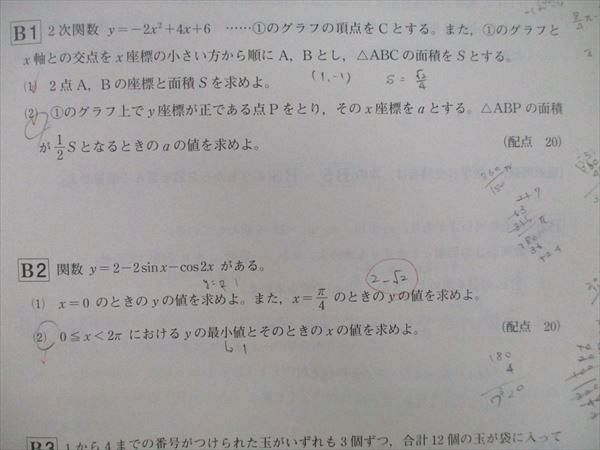 B1 2次関数 y=-2x²+4x+6 ……①のグラフの頂点をCとする。また，①のグラフと
x軸との交点をx座標の小さい方から順にA，Bとし，△ABCの面積をSとする。
(1) 2点A，Bの座標と面積Sを求めよ。 (1,-1) S=√2/4
(2) ①のグラフ上でy座標が正である点Pをとり，そのx座標をaとする。△ABPの面積
が1/2Sとなるときのaの値を求めよ。 (配点 20)
B2 関数 y=2-2sinx-cos2x がある。
2-√2
(1) x=0 のときのyの値を求めよ。また，x=π/4 のときのyの値を求めよ。
(2) 0≦x<2π におけるyの最小値とそのときのxの値を求めよ。 (配点 20)
1
180
4
720
B3 1から4までの番号がつけられた玉がいずれも3個ずつ，合計12個の玉が袋に入って